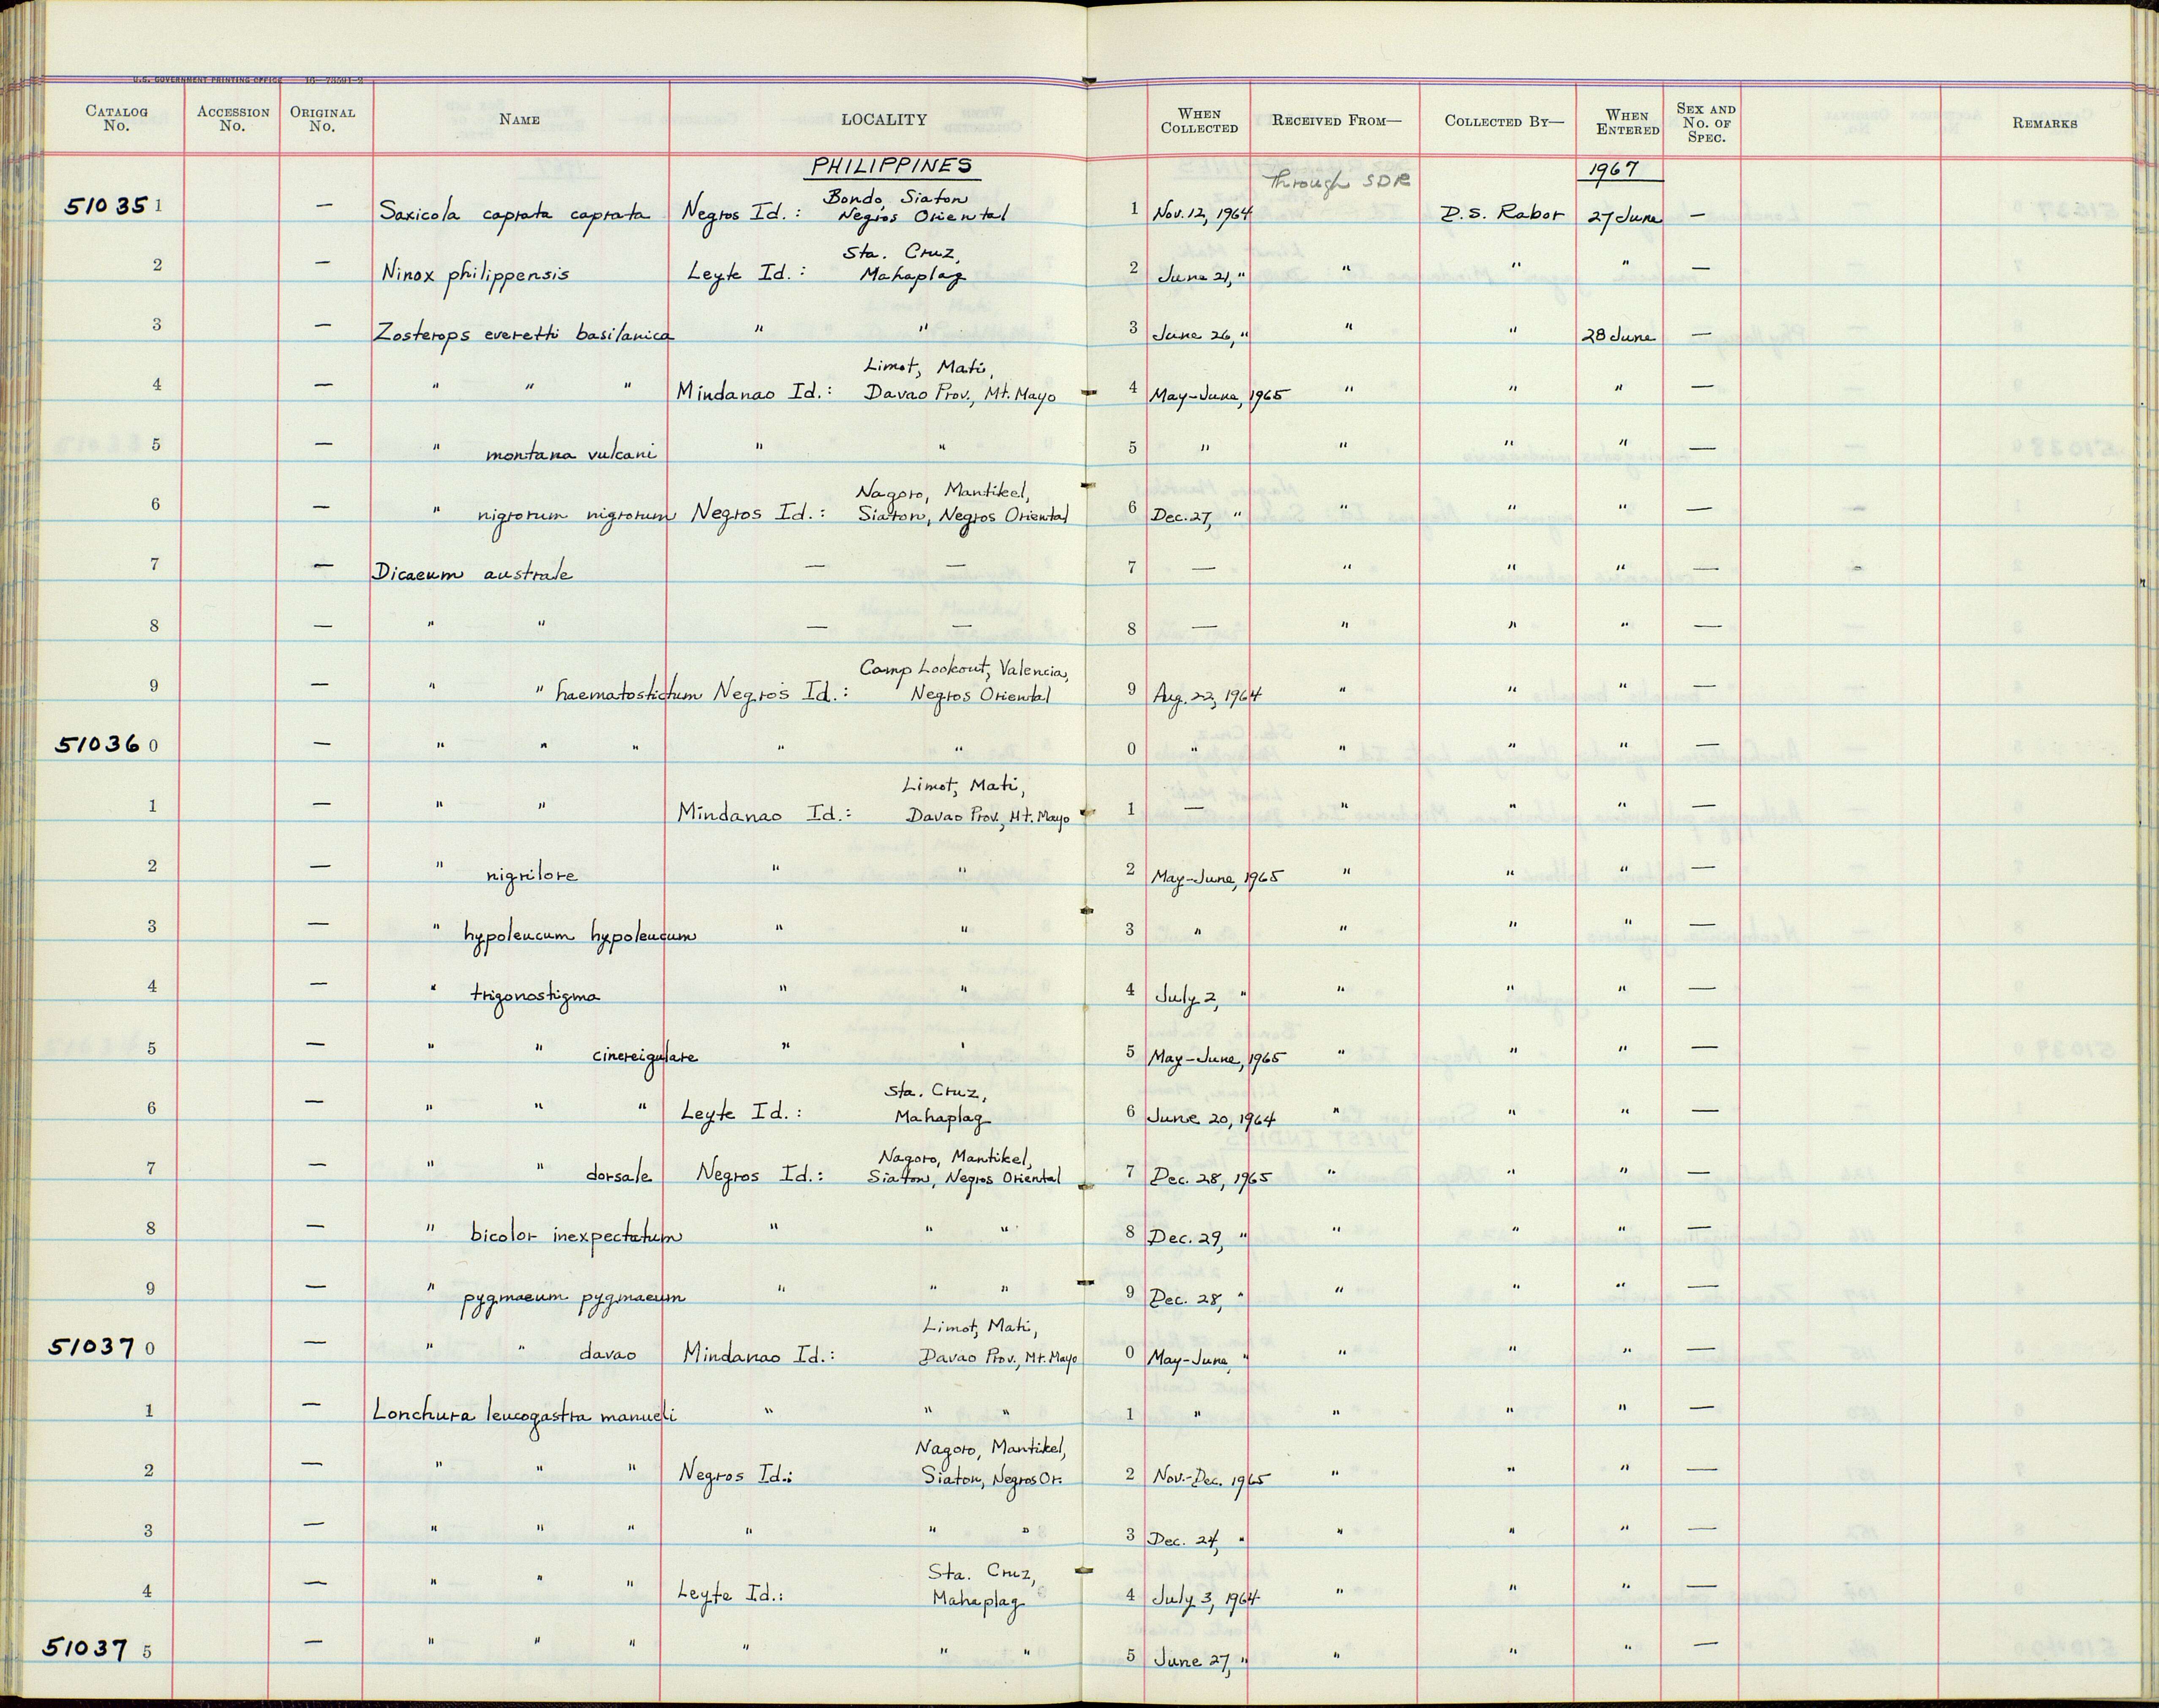 U.S. GOVERNMENT PRINTING OFFICE 16—73591-2
CATALOG No. ACCESSION No. ORIGINAL No. NAME LOCALITY WHEN COLLECTED RECEIVED FROM— COLLECTED BY— WHEN ENTERED SEX AND No. OF SPEC. REMARKS
PHILIPPINES 1967
Through SDR
Bondo, Siaton
510351 — Saxicola caprata caprata Negros Id.: Negros Oriental 1 Nov. 12, 1964 D. S. Rabor 27 June —
Sta. Cruz,
2 — Ninox philippensis Leyte Id.: Mahaplag 2 June 21, " " " " —
3 — Zosterops everetti basilanica " " 3 June 26, " " " 28 June —
Limot, Mati,
4 — " " " Mindanao Id.: Davao Prov., Mt. Mayo 4 May-June, 1965 " " " —
5 — " montana vulcani " " 5 " " " " —
Nagoro, Mantikel,
6 — " nigrorum nigrorum Negros Id.: Siaton, Negros Oriental 6 Dec. 27, " " " " —
7 — Dicaeum australe — — 7 — " " " —
8 — " " — — 8 — " " " —
Camp Lookout, Valencia,
9 — " " haematostictum Negros Id.: Negros Oriental 9 Aug. 22, 1964 " " " —
510360 — " " " " " 0 " " " " —
Limot, Mati,
1 — " " Mindanao Id.: Davao Prov., Mt. Mayo 1 — " " " —
2 — " nigrilore " " 2 May-June, 1965 " " " —
3 — " hypoleucum hypoleucum " " 3 " " " " —
4 — " trigonostigma " " 4 July 2, " " " " —
5 — " " cinereigulare " " 5 May-June, 1965 " " " —
Sta. Cruz,
6 — " " " Leyte Id.: Mahaplag 6 June 20, 1964 " " " —
Nagoro, Mantikel,
7 — " " dorsale Negros Id.: Siaton, Negros Oriental 7 Dec. 28, 1965 " " " —
8 — " bicolor inexpectatum " " " 8 Dec. 29, " " " " —
9 — " pygmaeum pygmaeum " " " 9 Dec. 28, " " " " —
Limot, Mati,
510370 — " " davao Mindanao Id.: Davao Prov., Mt. Mayo 0 May-June, " " " " —
1 — Lonchura leucogastra manueli " " " 1 " " " " —
Nagoro, Mantikel,
2 — " " " Negros Id.: Siaton, Negros Or. 2 Nov.-Dec. 1965 " " " —
3 — " " " " " " 3 Dec. 24, " " " " —
Sta. Cruz,
4 — " " " Leyte Id.: Mahaplag 4 July 3, 1964 " " " —
510375 — " " " " " " 5 June 27, " " " " —